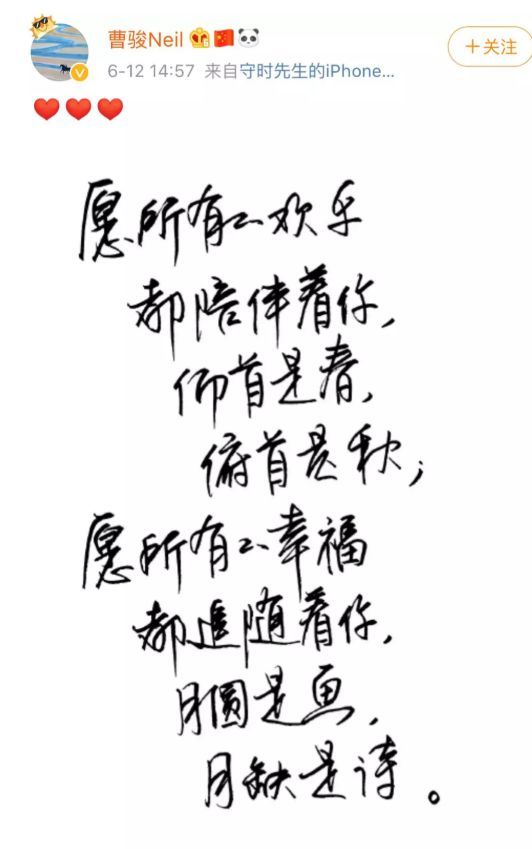 曹骏Neil
+关注
6-12 14:57 来自守时先生的iPhone...
愿所有的欢乐
都陪伴着你,
仰首是春,
俯首是秋;
愿所有的幸福
都追随着你,
月圆是画,
月缺是诗。